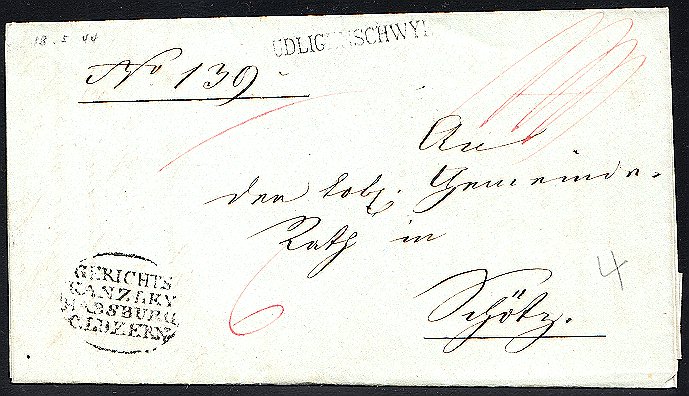 18. 5 44
UDLIGENSCHWYL
No 139
An
den lobl. Gemeinde-
Rath in
Schötz.
6
4
GERICHTS
KANZLEY
HABSBURG
C. LUZERN